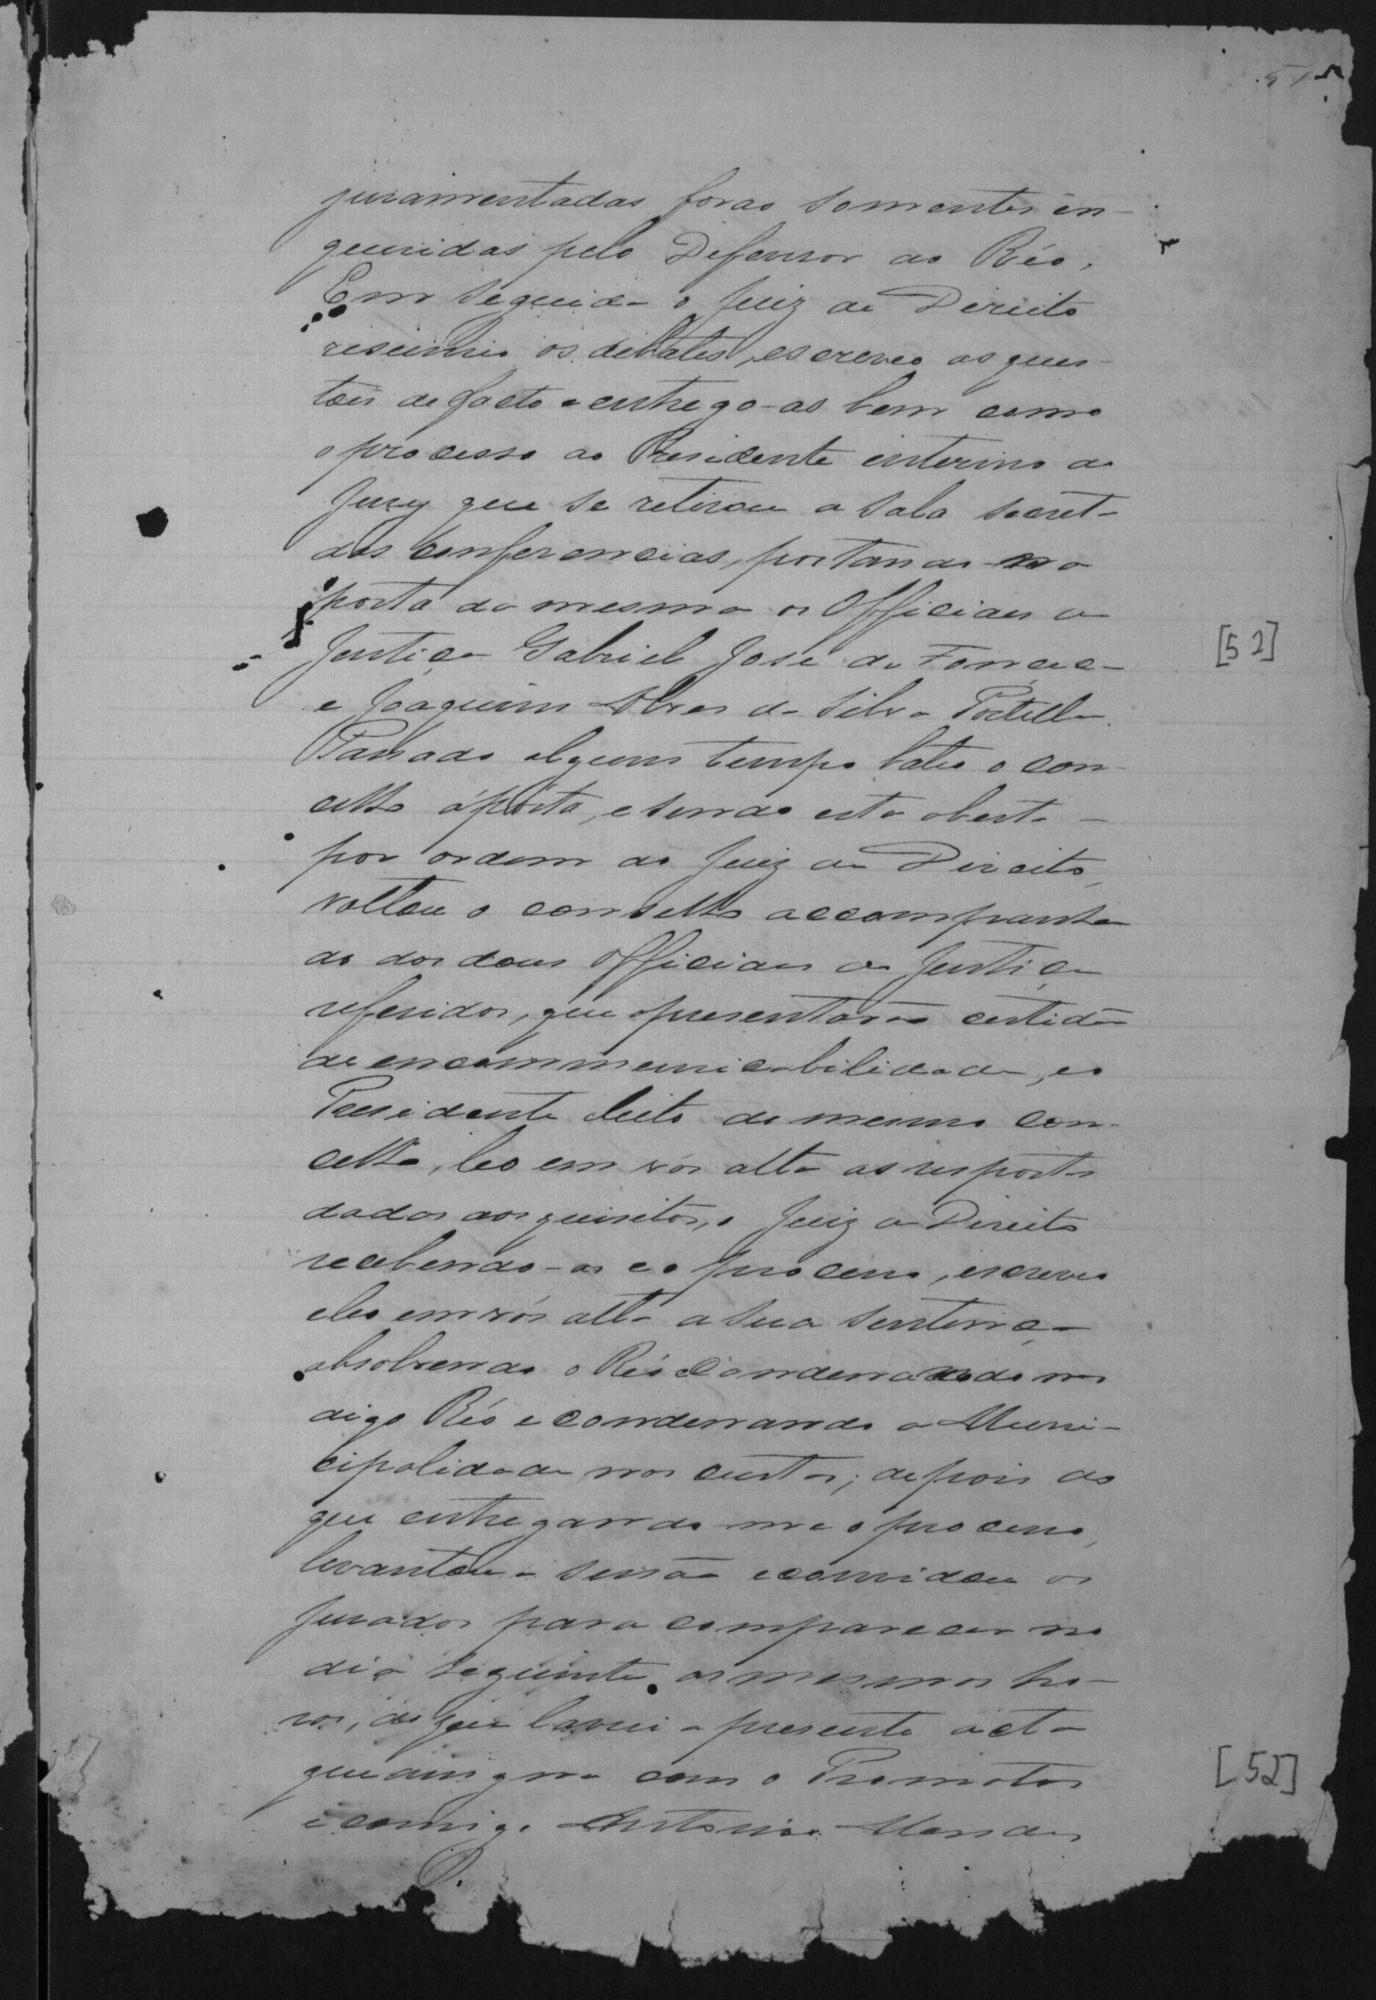 51
juramentadas forão somente in-
queridas pelo Defensor do Réo.
Em seguida o Juiz de Direito
resumio os debates, escreveo as ques-
tões de facto e entrego-as bem como
o processo ao Presidente interino do
Jury que se retirou a sala secreta
das conferencias, postando-se a
porta da mesma os Officiaes de
Justiça Gabriel José da Fonceca
[52]
e Joaquim Alves da Silva Portella.
Passado algum tempo bateo o con-
celho á porta, e sendo esta aberta
por ordem do Juiz de Direito,
voltou o conselho accompanha-
do dos dous Officiaes de Justiça
referidos, que apresentarão certidão
de encommunicabilidade, e o
Presidente eleito do mesmo con-
celho, leo em vós alta as respostas
dadas aos quisitos, o Juiz de Direito
recebendo-as e o processo, escreveo
e leo em vós alta a sua sentença
absolvendo o Réo e condenando no
digo Réo e condenando a Muni-
cipalidade nas custas; depois do
que entregando-me o processo,
levantou a sessão e convidou os
Jurados para comparecer no
dia seguinte as mesmas ho-
ras, do que lavrei a presente acta
que assigna com o Promotor
[52]
e comigo Antonio Mendes